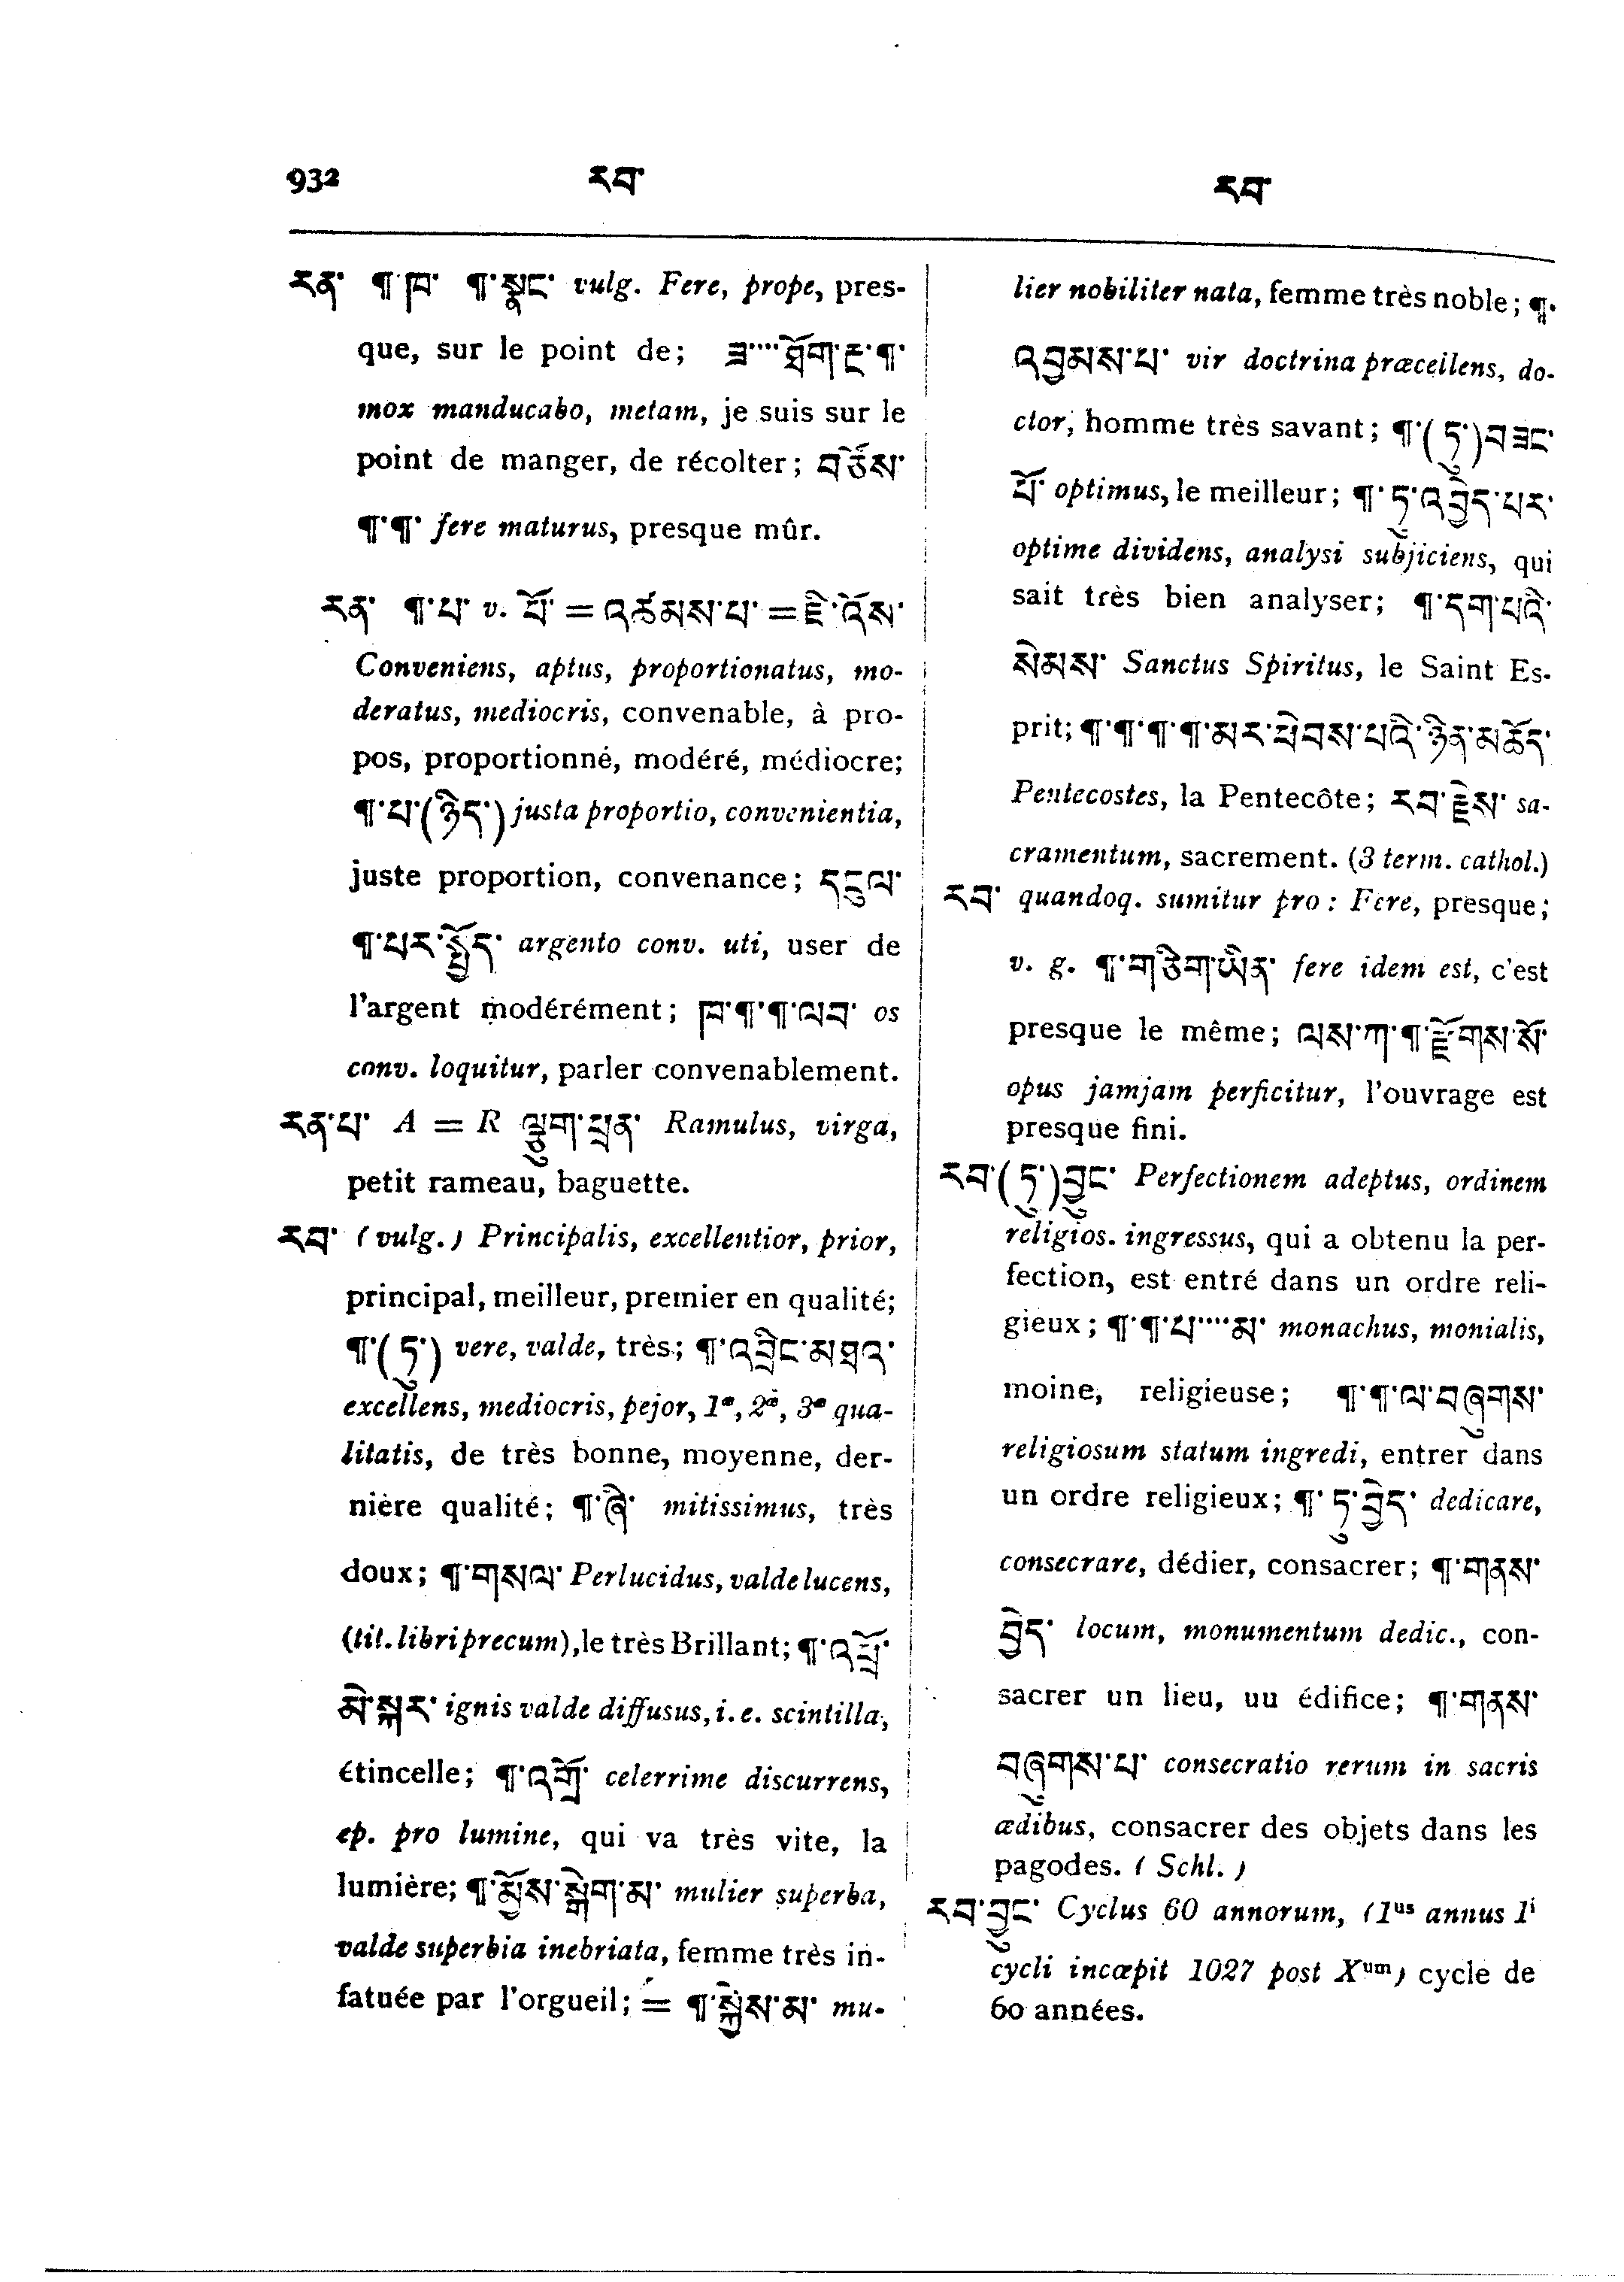 932 རབ་ རབ་
རན་ ¶་ཁ་ ¶་སྣང་ vulg. Fere, prope, pres-
que, sur le point de; ཟ་་་་ཐོག་རྔ་¶་
mox manducabo, metam, je suis sur le
point de manger, de récolter; བཙོས་
¶་¶་ fere maturus, presque mûr.
རན་ ¶་པ་ v. པོ་ = འཚམས་པ་ = ཇི་འོས་
Conveniens, aptus, proportionatus, mo-
deratus, mediocris, convenable, à pro-
pos, proportionné, modéré, médiocre;
¶་པ་(ཉིད་) justa proportio, convenientia,
juste proportion, convenance; དངུལ་
¶་པར་སྤྱོད་ argento conv. uti, user de
l'argent modérément; ཁ་¶་¶་ལབ་ os
conv. loquitur, parler convenablement.
རན་པ་ A = R ལྕུག་ཕྲན་ Ramulus, virga,
petit rameau, baguette.
རབ་ (vulg.) Principalis, excellentior, prior,
principal, meilleur, premier en qualité;
¶་(ཏུ་) vere, valde, très; ¶་འབྲིང་མཐའ་
excellens, mediocris, pejor, 1ᵉ, 2ᵉ, 3ᵉ qua-
litatis, de très bonne, moyenne, der-
nière qualité; ¶་ཞི་ mitissimus, très
doux; ¶་གསལ་ Perlucidus, valde lucens,
(tit. libri precum), le très Brillant; ¶་འཕྲོ་
མེ་སྐར་ ignis valde diffusus, i. e. scintilla,
étincelle; ¶་འགྲོ་ celerrime discurrens,
ep. pro lumine, qui va très vite, la
lumière; ¶་མྱོས་སྒེག་མ་ mulier superba,
valde superbia inebriata, femme très in-
fatuée par l'orgueil; = ¶་སྐྱེས་མ་ mu-
lier nobiliter nata, femme très noble; ¶་
འབྱམས་པ་ vir doctrina præcellens, do-
ctor, homme très savant; ¶་(ཏུ་)བཟང་
པོ་ optimus, le meilleur; ¶་ཏུ་འབྱེད་པར་
optime dividens, analysi subjiciens, qui
sait très bien analyser; ¶་དག་པའི་
སེམས་ Sanctus Spiritus, le Saint Es-
prit; ¶་¶་¶་¶་མར་ཕེབས་པའི་ཉིན་མཆོད་
Pentecostes, la Pentecôte; རབ་རྗེས་ sa-
cramentum, sacrement. (3 term. cathol.)
རབ་ quandoq. sumitur pro: Fere, presque;
v. g. ¶་གཅིག་ཡིན་ fere idem est, c'est
presque le même; ལས་ཀ་¶་རྫོགས་སོ་
opus jamjam perficitur, l'ouvrage est
presque fini.
རབ་(ཏུ་)བྱུང་ Perfectionem adeptus, ordinem
religios. ingressus, qui a obtenu la per-
fection, est entré dans un ordre reli-
gieux; ¶་¶་པ་་་་མ་ monachus, monialis,
moine, religieuse; ¶་¶་ལ་བཞུགས་
religiosum statum ingredi, entrer dans
un ordre religieux; ¶་ཏུ་བྱེད་ dedicare,
consecrare, dédier, consacrer; ¶་གནས་
བྱེད་ locum, monumentum dedic., con-
sacrer un lieu, uu édifice; ¶་གནས་
བཞུགས་པ་ consecratio rerum in sacris
ædibus, consacrer des objets dans les
pagodes. (Schl.)
རབ་བྱུང་ Cyclus 60 annorum, (1ᵘˢ annus 1ⁱ
cycli incœpit 1027 post Xᵘᵐ) cycle de
60 années.